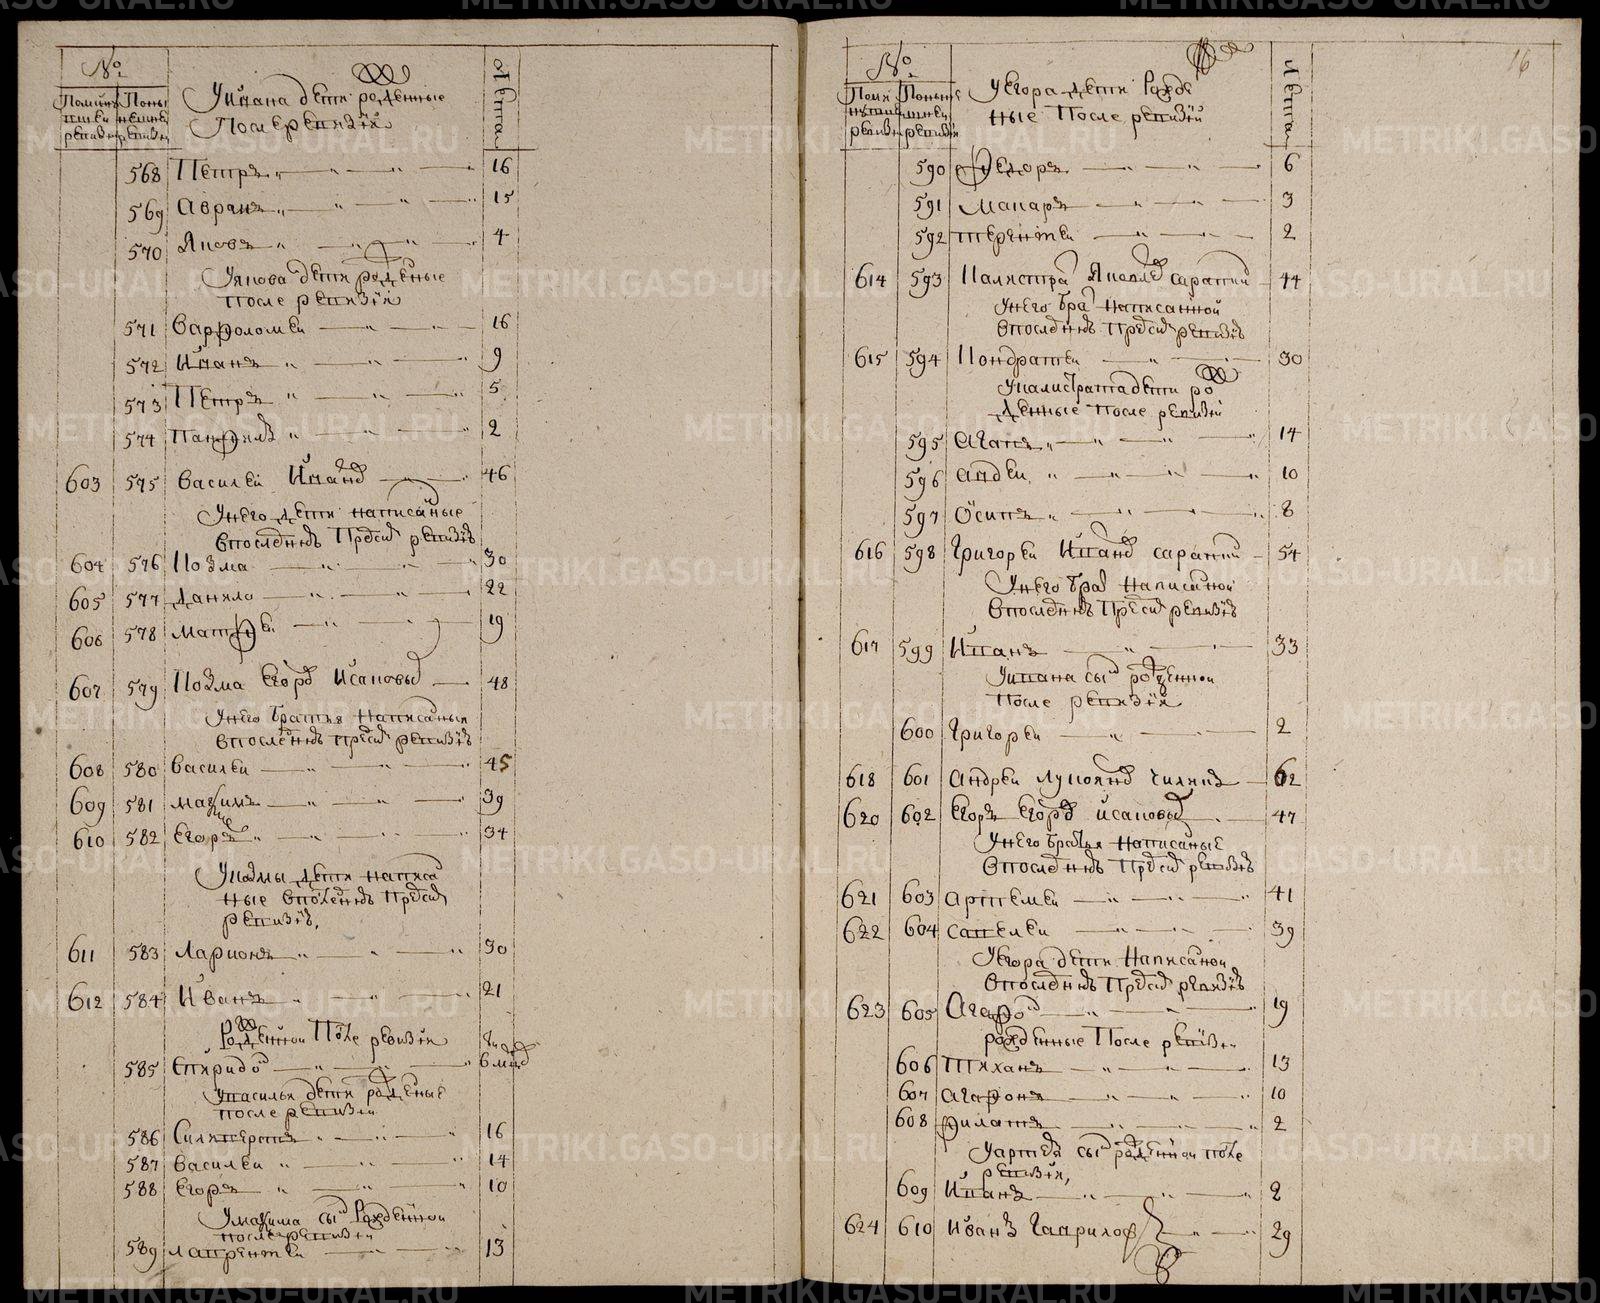 №
Лѣта
У Ивана дети рожденные
после ревизии
568 Петръ 16
569 Авраамъ 15
570 Яковъ 4
У Якова дети рожденные
после ревизии
571 Варфоломеи 16
572 Иванъ 9
573 Петръ 5
574 Панфилъ 2
603 575 Василеи Иванов 46
У него дети написаные
в последней пред сей ревизiе
604 576 Козма 30
605 577 Данило 22
606 578 Матфеи 19
607 579 Козма Егоров Исаковых 48
У него братья написаныя
в последней пред сей ревизiе
608 580 Василеи 45
609 581 Макsимъ 39
610 582 Егоръ 34
У Козмы дети написа
ные в последней пред сей
ревизiе
611 583 Ларионъ 30
612 584 Иванъ 21
Рожденной после ревизiи
585 Спиридон 6 мѣс
У Василья дети рожденые
после ревизiи
586 Силивестръ 16
587 Василеи 14
588 Егоръ 10
У Макsима сын рожденной
после ревизiи
589 Лаврентеи 13
16
№
Лѣта
У Егора дети рожде
ные после ревизiи
590 Федоръ 6
591 Макаръ 3
592 Терентеи 2
614 593 Калистрат Яковлев 44
У него брат написанной
в последней пред сей ревизiе
615 594 Кондратеи 30
У Калистрата дети ро
жденные после ревизiи
595 14
596 10
597 Осипъ 8
616 598 Григореи Иванов 54
У него брат написаной
в последней пред сей ревизiе
617 599 Иванъ 33
У Ивана сын рожденной
после ревизiи
600 Григореи 2
618 601 Андреи Лукоянов 62
620 602 Егоръ Егоров Исаковых 47
У него братья написаные
в последней пред сей ревизiе
621 603 Артемеи 41
622 604 Савелеи 39
У Егора дети написаной
в последней пред сей ревизiе
623 605 Агафон 19
рожденные после ревизiи
606 Тихонъ 13
607 Агафонъ 10
608 Филатъ 2
У Артемья сын рожденной после
ревизiи,
609 Иванъ 2
624 610 Иванъ Гаврилов 29
METRIKI.GASO-URAL.RU